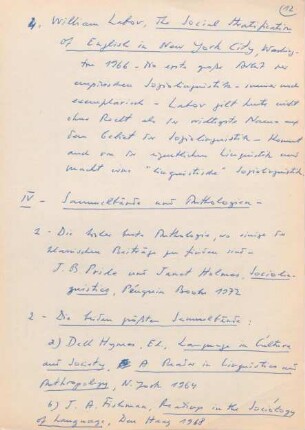 12
4. William Labov, The Social Stratification
of English in New York City, Washing-
ton 1966 - Die erste große Arbeit der
empirischen Soziolinguistik - immer noch
exemplarisch - Labov gilt heute nicht
ohne Recht als der wichtigste Mann auf
dem Gebiet der Soziolinguistik - Kommt
auch von der eigentlichen Linguistik und
macht eine "linguistische" Soziolinguistik
IV - Sammelbände und Anthologien -
1 - Die beste Anthologie, wo einige der
klassischen Beiträge zu finden sind -
J. B. Pride und Janet Holmes, Sociolin-
guistics, Penguin Books 1972
2 - Die beiden größten Sammelbände:
a) Dell Hymes, Ed., Language in Culture
and Society, A Reader in Linguistics and
Anthropology, N. York 1964
b) J. A. Fishman, Readings in the Sociology
of Language, Den Haag 1968